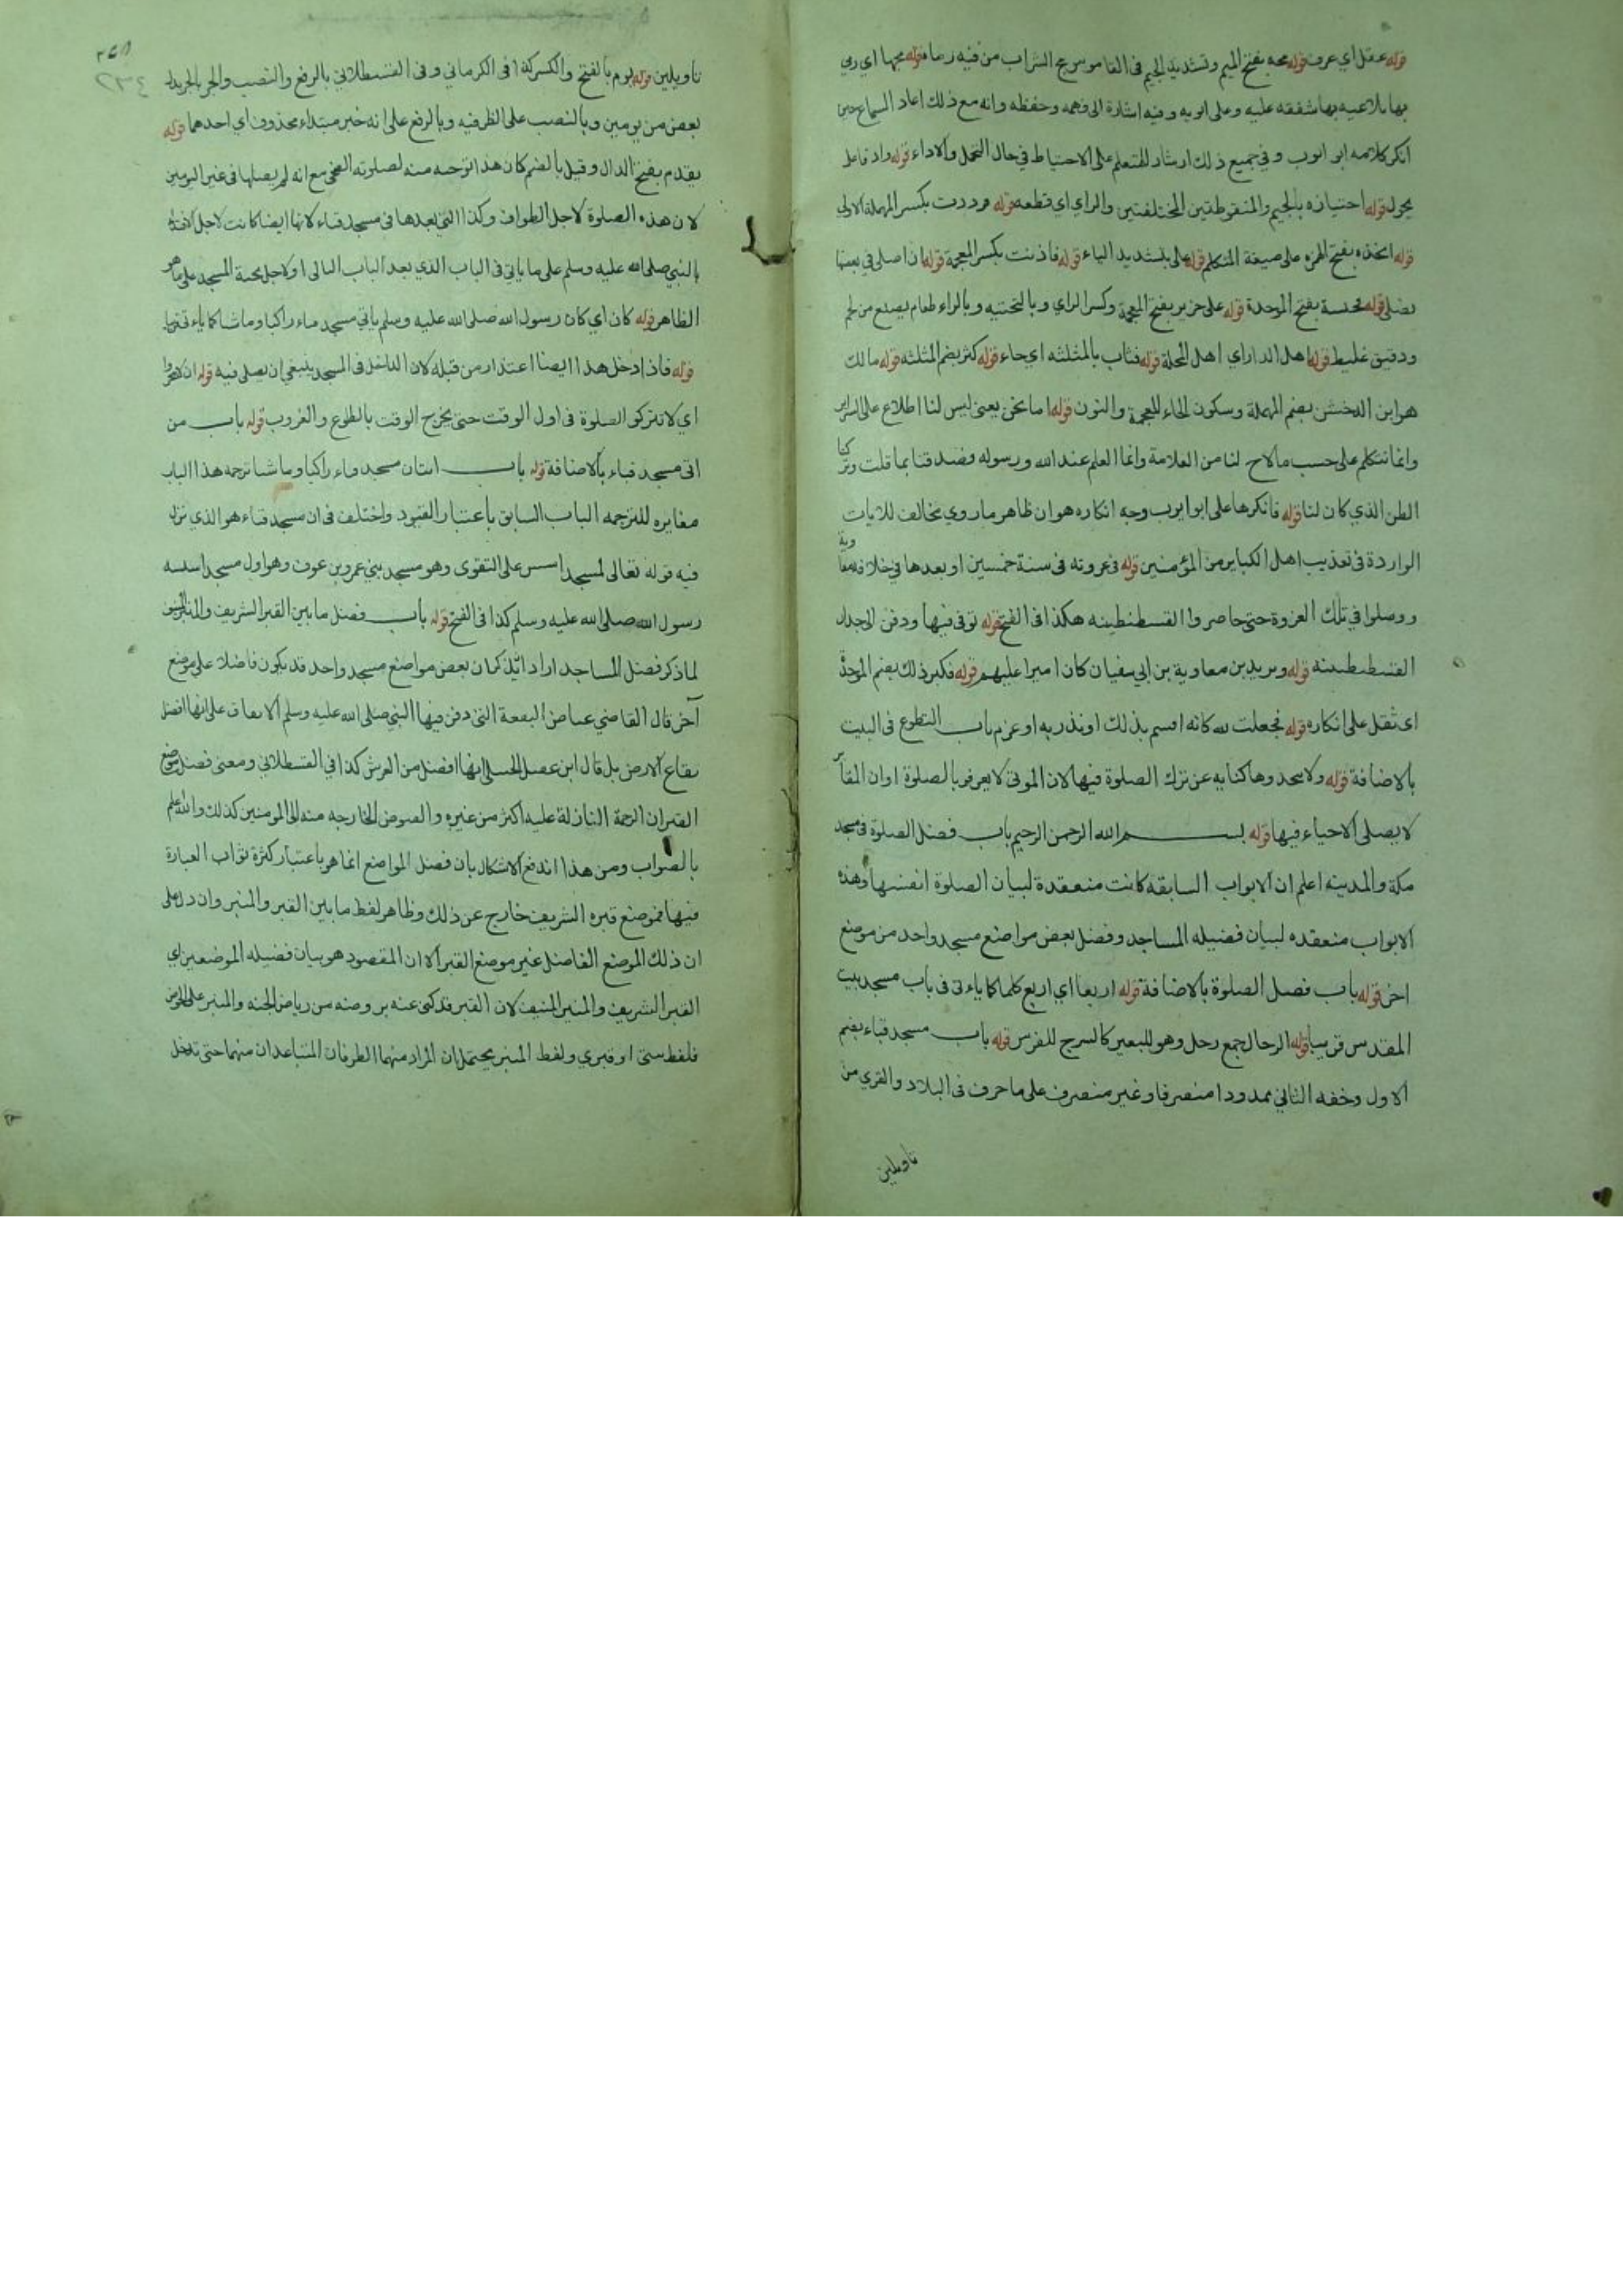 قوله عقل اي عرف قوله مجه بفتح الميم وتشديد الجيم في القاموس مج الشراب من فيه رماه قوله مجها اي رمي
بها ملاعبه بها شفقه عليه وعلى ابويه وفيه اشارة الى فهمه وحفظه وانه مع ذلك اعاد السماع حين
انكر كلامه ابو ايوب وفي جميع ذلك ارشاد للمتعلم على الاحتياط في حال التحمل والاداء قوله واد فاعل
يحول قوله اجتيازه بالجيم والمنقوطتين المختلفتين والزاي اي قطعه قوله فوددت بكسر المهملة الاولى
قوله اتخذه بفتح الهمزه على صيغة المتكلم قوله على بتشديد الياء قوله فاذنت بكسر المعجمة قوله ان اصلي في بعضها
نصلي قوله فحبسه بفتح الموحدة قوله على خزير بفتح المعجمة وكسر الزاي وبالتحتيه وبالراء طعام يصنع من لحم
ودقيق غليظ قوله اهل الدار اي اهل المحلة قوله فثاب بالمثلثه اي جاء قوله كثر بضم المثلثه قوله مالك
هو ابن الدخشن بضم المهملة وسكون الخاء المعجمة والنون قوله اما نحن يعني ليس لنا اطلاع على اسراير
وانما نتكلم على حسب ما لاح لنا من العلامة وانما العلم عند الله ورسوله وقصدقنا بما قلت وتركنا
الظن الذي كان لنا قوله فانكرها على ابو ايوب وجه انكاره هو ان ظاهر ما روي مخالف للايات
الواردة في تعذيب اهل الكباير من المؤمنين قوله في غزوته في سنة خمسين او بعدها في خلافه معاوية
ووصلوا في تلك الغزوة حتى حاصروا القسطنطينه هكذا في الفتح قوله توفي فيها ودفن الى جدار
القسطنطينه قوله ويزيد بن معاوية بن ابي سفيان كان اميرا عليهم قوله فكبر ذلك بضم الموحدة
اي ثقل على انكاره قوله فجعلت لله كانه اقسم بذلك او نذر به او عزم باب التطوع في البيت
بالاضافة قوله ولا تتخذوها كنايه عن ترك الصلوة فيها لان الموتى لا يعرفوا بالصلوة او ان المقابر
لا يصلي الاحياء فيها قوله بسم الله الرحمن الرحيم باب فضل الصلوة في مسجد
مكة والمدينه اعلم ان الابواب السابقه كانت منعقدة لبيان الصلوة انفسها وهذه
الابواب منعقده لبيان فضيله المساجد وفضل بعض مواضع مسجد واحد من موضع
اخر قوله باب فضل الصلوة بالاضافة قوله اربعا اي اربع كلما كما ياءتي في باب مسجد بيت
المقدس قريبا قوله الرحال جمع رحل وهو للبعير كالسرج للفرس قوله باب مسجد قباء بضم
الاول وخفه الثاني ممدودا منصرفا وغير منصرف على ما حرف في البلاد والقري من
تاويلين
٢٣٤
تاويلين قوله يوم بالفتح والكسر كذا في الكرماني وفي القسطلاني بالرفع والنصب والجر بالجر بدل
بعض من يومين وبالنصب على الظرفيه وبالرفع على انه خبر مبتداء محذوف اي احدهما قوله
يقدم بفتح الدال وقيل بالضم كان هذا توجيه منه لصلوته الضحى مع انه لم يصلها في غير اليومين
لان هذه الصلوة لاجل الطواف وكذا التي بعدها في مسجد قباء لانها ايضا كانت لاجل الاقتداء
بالنبي صلى الله عليه وسلم على ما ياتي في الباب الذي بعد الباب التالى او لاجل تحية المسجد على ما هو
الظاهر قوله كان اي كان رسول الله صلى الله عليه وسلم ياتي مسجد قباء راكبا وماشيا كما ياءتي قريبا
قوله فاذا دخل هذا ايضا اعتذار من قبله لان الداخل في المسجد ينبغي ان يصلي فيه قوله ان لا تتحروا
اي لا تتركوا الصلوة في اول الوقت حتى يخرج الوقت بالطلوع والغروب قوله باب من
اتى مسجد قباء بالاضافة قوله باب اتيان مسجد قباء راكبا وماشيا ترجمه هذا الباب
مغايره للترجمه الباب السابق باعتبار القيود واختلف في ان مسجد قباء هو الذي نزل
فيه قوله تعالى لمسجد اسس على التقوى وهو مسجد بني عمرو بن عوف وهو اول مسجد اسسه
رسول الله صلى الله عليه وسلم كذا في الفتح قوله باب فضل ما بين القبر الشريف والمنبر المنيف
لما ذكر فضل المساجد اراد ان يذكر ان بعض مواضع مسجد واحد قد يكون فاضلا على موضع
آخر قال القاضي عياض البقعة التي دفن فيها النبي صلى الله عليه وسلم الاتفاق على انها افضل
بقاع الارض بل قال ابن عقيل الحنبلي انها افضل من العرش كذا في القسطلاني ومعنى فضل موضع
القبر ان الرحمة النازلة عليه اكثر من غيره والفيوض الخارجه منه الى المومنين كذلك والله اعلم
بالصواب ومن هذا اندفع الاشكال بان فضل المواضع انما هو باعتبار كثرة ثواب العبارة
فيها فموضع قبره الشريف خارج عن ذلك وظاهر لفظ ما بين القبر والمنبر وان دل على
ان ذلك الموضع الفاضل غير موضع القبر الا ان المقصود هو بيان فضيله الموضعين اي
القبر الشريف والمنبر المنيف لان القبر قد كنى عنه بروضه من رياض الجنه والمنبر على الحوض
فلفظ بيتي او قبري ولفظ المنبر يحتمل ان المراد منهما الطرفان المتباعدان منهما حتى تدخل